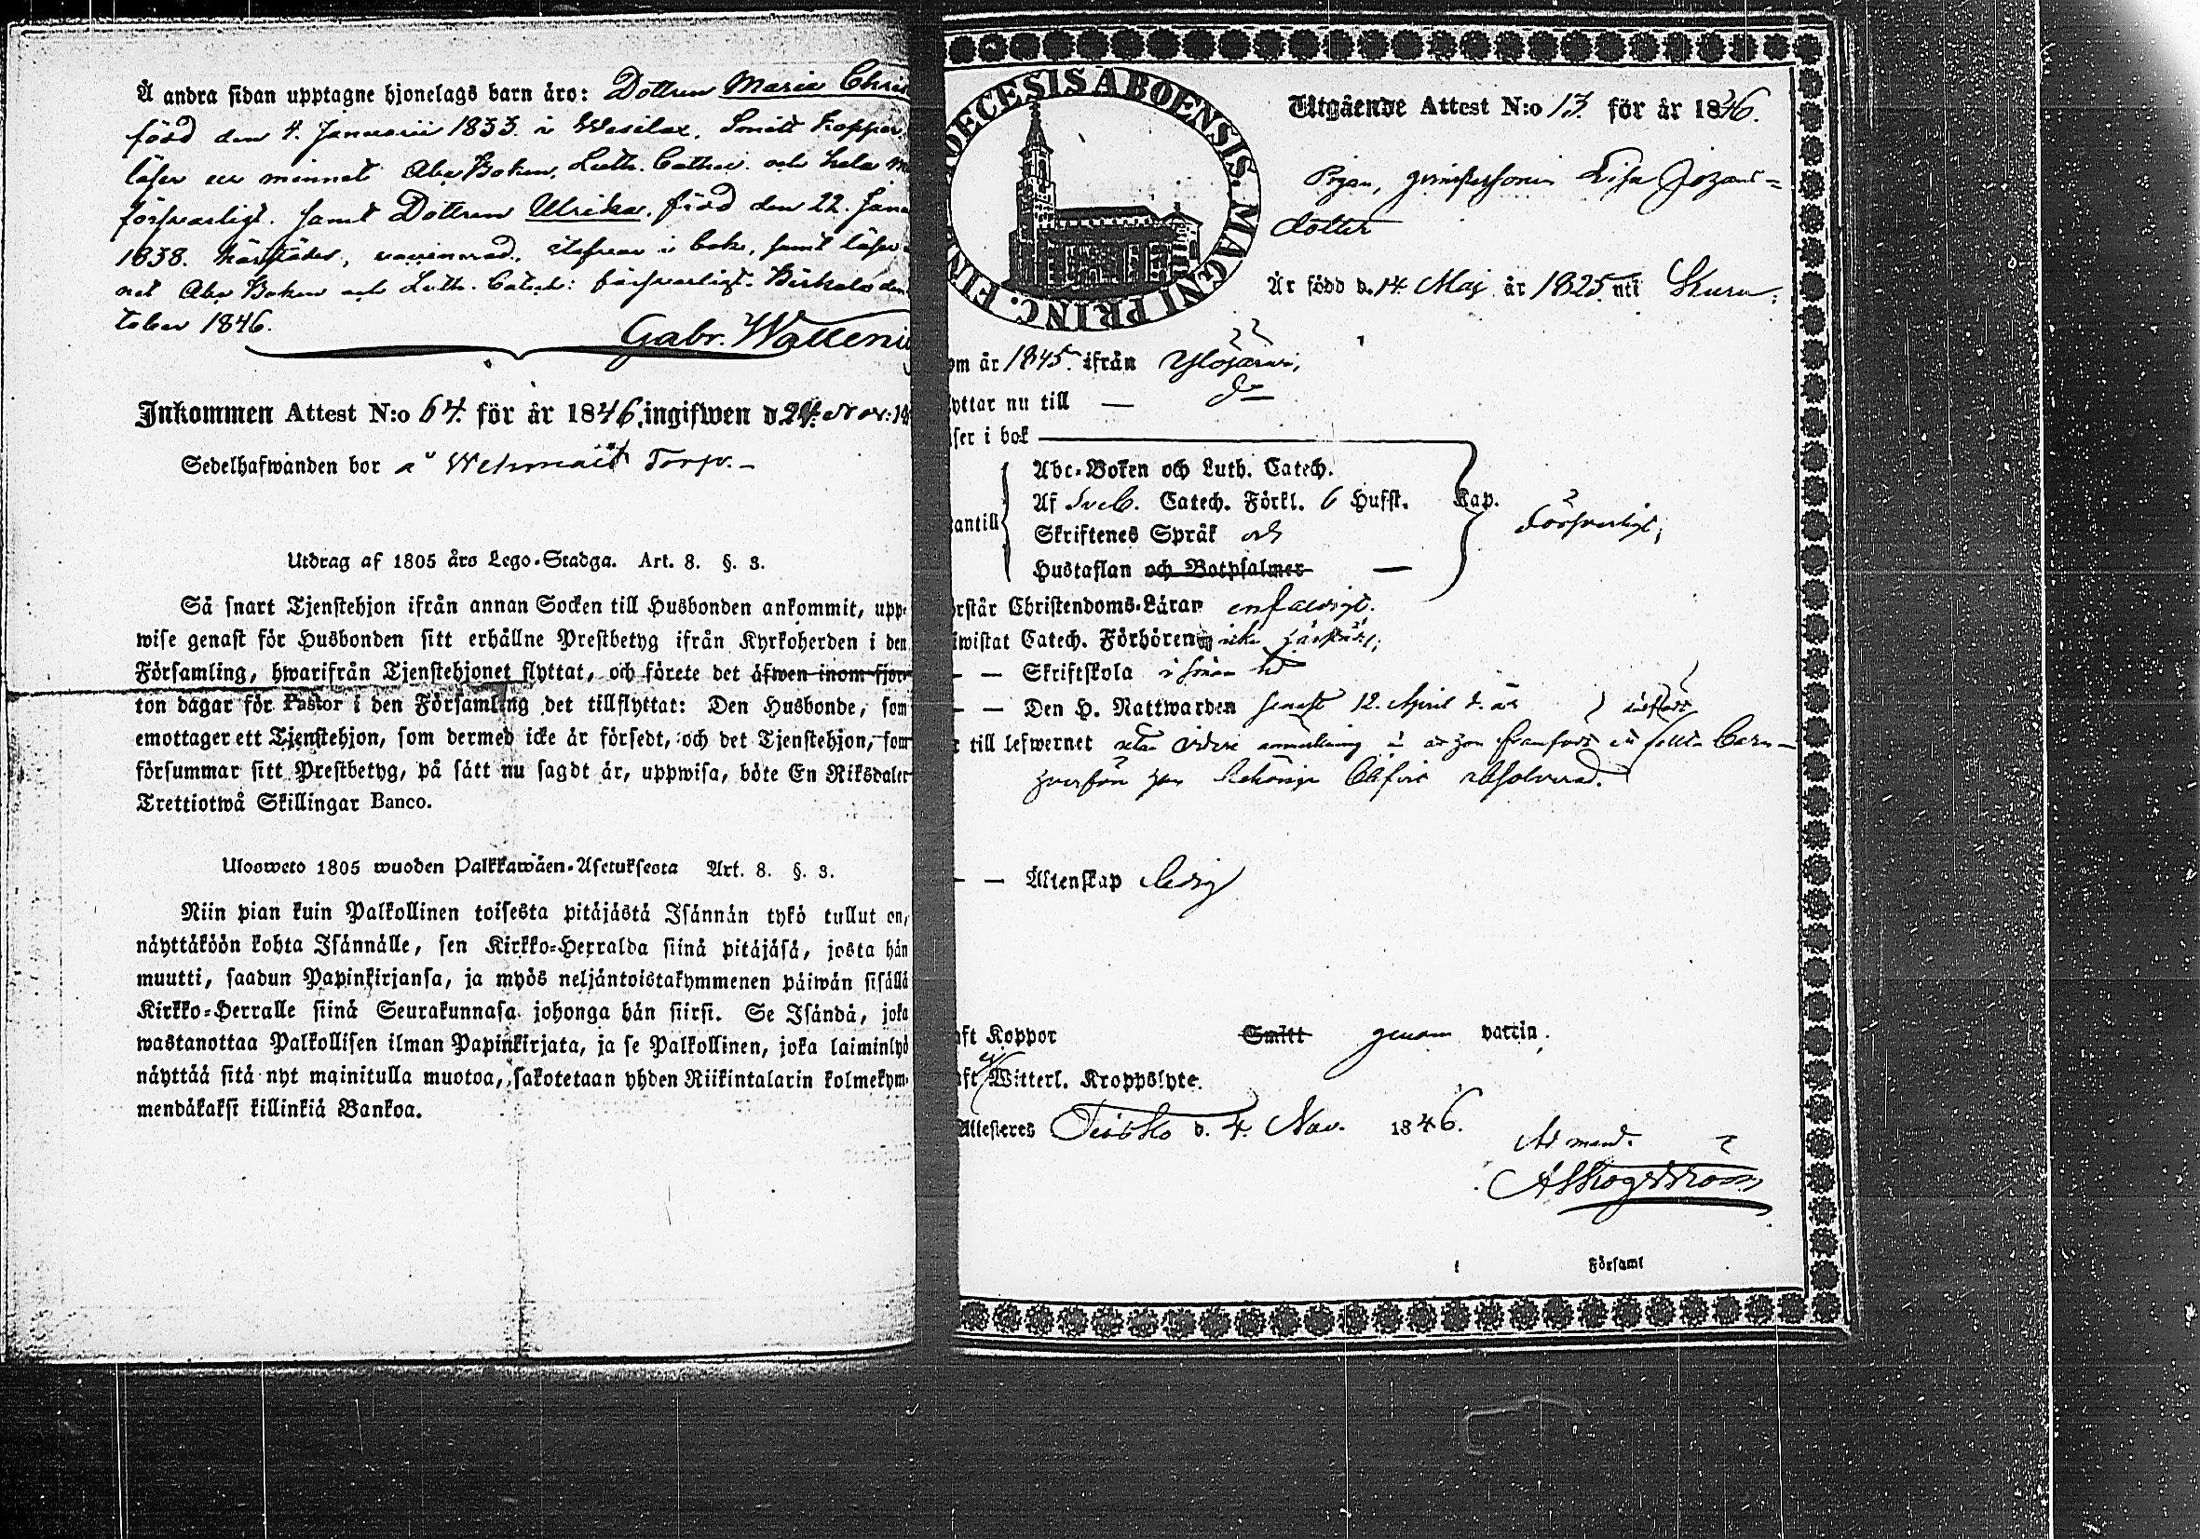 Å andra sidan upptagne hjonelags barn äro: Dottren Maria Chris
född den 4. Januarii 1833. i Wesilax, Smitt koppor,
läser ur minnet Abc Boken, Luth. Cathec. och hela
försvarligt. samt Dottren Ulrika, född den 22. Janu
1838. härstädes, vaccinerad, stafvar i bok, samt läser
net Abc Boken och Luth. Catech: försvarligt. Birkala den
tober 1846.
Gabr. Walleni
Inkommen Attest N:o 64. för år 1846, ingifwen d. 24. Nov: 18
Sedelhafwanden bor å Torp. –
Utdrag af 1805 års Lego-Stadga. Art. 8. §. 3.
Så snart Tjenstehjon ifrån annan Socken till Husbonden ankommit, upp-
wise genast för Husbonden sitt erhållne Prestbetyg ifrån Kyrkoherden i den
Församling, hwarifrån Tjenstehjonet flyttat, och förete det äfwen inom fjor-
ton dagar för Pastor i den Församling det tillflyttat: Den Husbonde, som
emottager ett Tjenstehjon, som dermed icke är försedt, och det Tjenstehjon, som
försummar sitt Prestbetyg, på sätt nu sagdt är, uppwisa, böte En Riksdaler
Trettiotwå Skillingar Banco.
Ulosweto 1805 wuoden Palkkawäen-Asetuksesta Art. 8. §. 3.
Niin pian kuin Palkollinen toisesta pitäjästä Isännän tykö tullut on,
näyttäköön kohta Isännälle, sen Kirkko-Herralda siinä pitäjäsä, josta hän
muutti, saadun Papinkirjansa, ja myös neljäntoistakymmenen päiwän sisällä
Kirkko-Herralle siinä Seurakunnasa johonga hän siirsi. Se Isändä, joka
wastanottaa Palkollisen ilman Papinkirjata, ja se Palkollinen, joka laiminlyö
näyttää sitä nyt mainitulla muotoa, sakotetaan yhden Riikintalarin kolmekym-
mendäkaksi killinkiä Bankoa.
OECESIS ABOENSIS. MAGNI PRINC. FIN
Utgående Attest N:o 13 för år 1846.
Pigan, Lisa Johans=
dotter
Är född d. 14 Maj år 1825 uti Kuru;
om år 1845. ifrån Ylöjärvi,
yttar nu till — do
ser i bok
Abc-Boken och Luth. Catech.
Af Sveb. Catech. Förkl. 6 Hufst. Kap.
antill Skriftenes Språk och försvarligt;
Hustaflan och Botpsalmer —
rstår Christendoms-Läran enfaldigt.
iwistat Catech. Förhören icke härstädes;
– – Skriftskola i sinom tid
– – Den H. Nattwarden senast 12. April d. år
till lefwernet utan vidare anmärkning än at hon framfödt ett oäkta barn
hvarför hon behörigen blifvit absolverad.
– – Äktenskap ledig
ft Koppor Smitt genom vaccin.
ft ej Witterl. Kroppslyte.
Attesteres Teisko d. 4. Nov. 1846.
Ad mand.
A Skogström
Församl